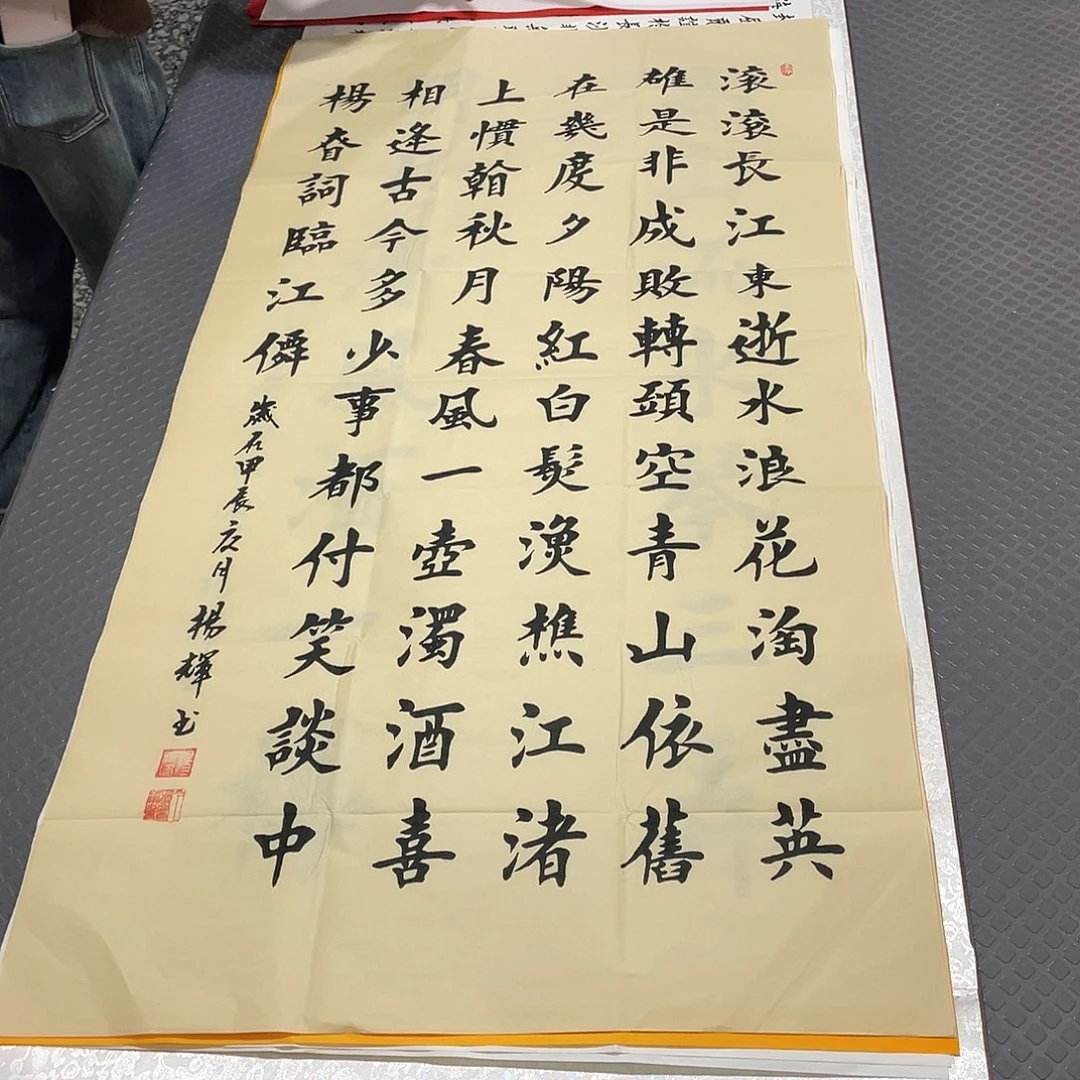 滚滚長江東逝水浪花淘盡英
雄是非成敗轉頭空青山依舊
在幾度夕陽紅白髮漁樵江渚
上慣翰秋月春風一壺濁酒喜
相逢古今多少事都付笑談中
楊昚詞臨江僊
歲在甲辰夏月楊輝书